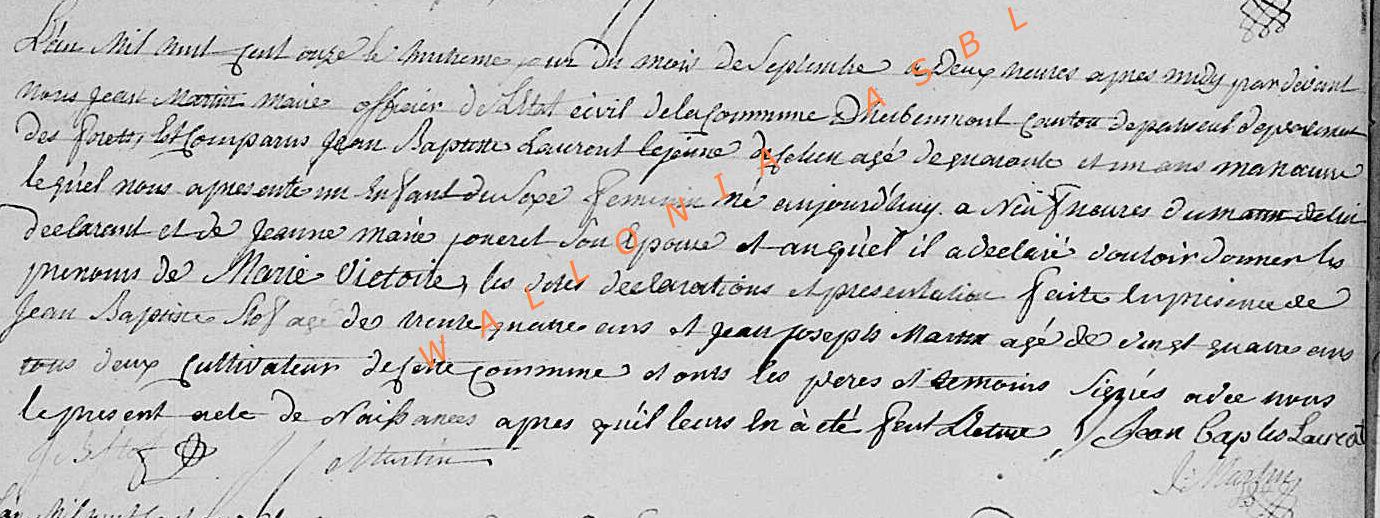 L'an Mil huit cent onze le huitieme jour du mois de Septembre a deux heures apres midy par devant
nous Jean Martin maire officier de L'Etat civil de la Commune D'herbeumont canton de paliseul departement
des forets, Est Comparus Jean Baptiste Laurent lejeune de agé de quarante et un ans manœuvre
lequel nous a presenté un Enfant du Sexe feminin né aujourd'huy a Neuf heures du matin de lui
declarant et de Jeanne marie poncret Son Epouse et auquel il a declaré vouloir donner les
prenoms de Marie Victoire, les dites declarations et presentation faite En presence de
Jean Baptiste Stof agé de trente quatre ans et Jean Joseph Martin agé de vingt quatre ans
tous deux Cultivateur de cette commune et onts les peres et temoins Signés avec nous
le present acte de Naissances apres qu'il leurs En à été fait Lecture Jean Baptis Laurent
J B Stof Martin J: Martin
WALLONIA ASBL